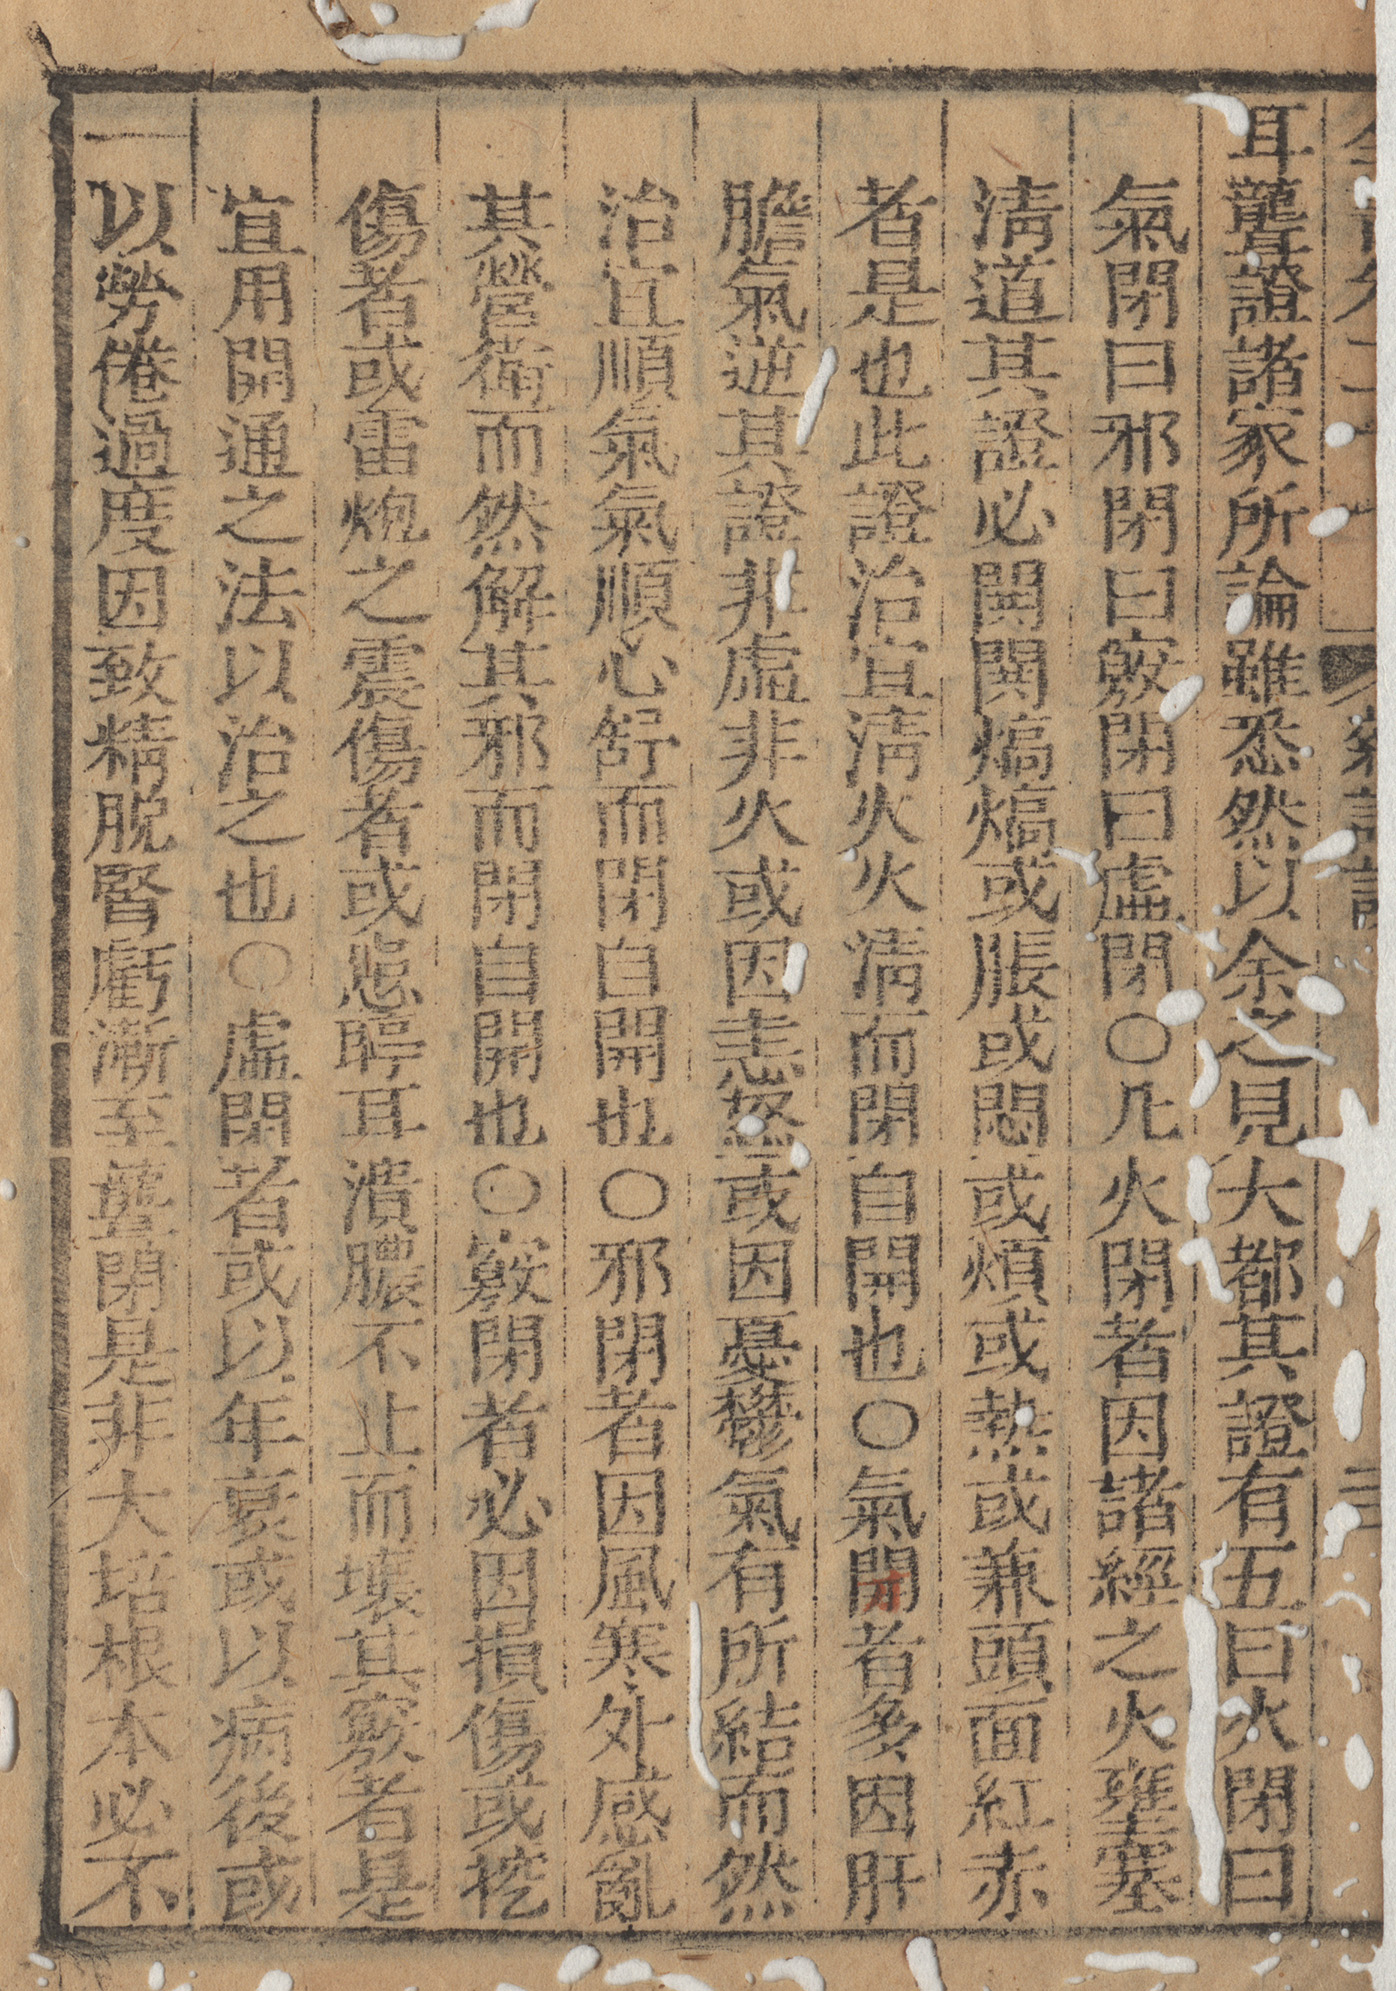 耳聾證諸家所論雖悉然以余之見大都其證有五曰火閉曰
氣閉曰邪閉曰竅閉曰虛閉○凡火閉者因諸經之火壅塞
清道其證必鬨鬨熇熇或脹或悶或煩或熱或兼頭面紅赤
者是也此證治宜清火火清而閉自開也○氣開者多因肝
膽氣逆其證非虛非火或因恚怒或因憂鬱氣有所結而然
治宜順氣氣順心舒而閉自開也○邪閉者因風寒外感亂
其營衛而然解其邪而閉自開也○竅閉者必因損傷或挖
傷者或雷炮之震傷者或患聤耳潰膿不止而壞其竅者是
宜用開通之法以治之也○虛閉者或以年衰或以病後或
以勞倦過度因致精脫腎虧漸至聾閉是非大培根本必不